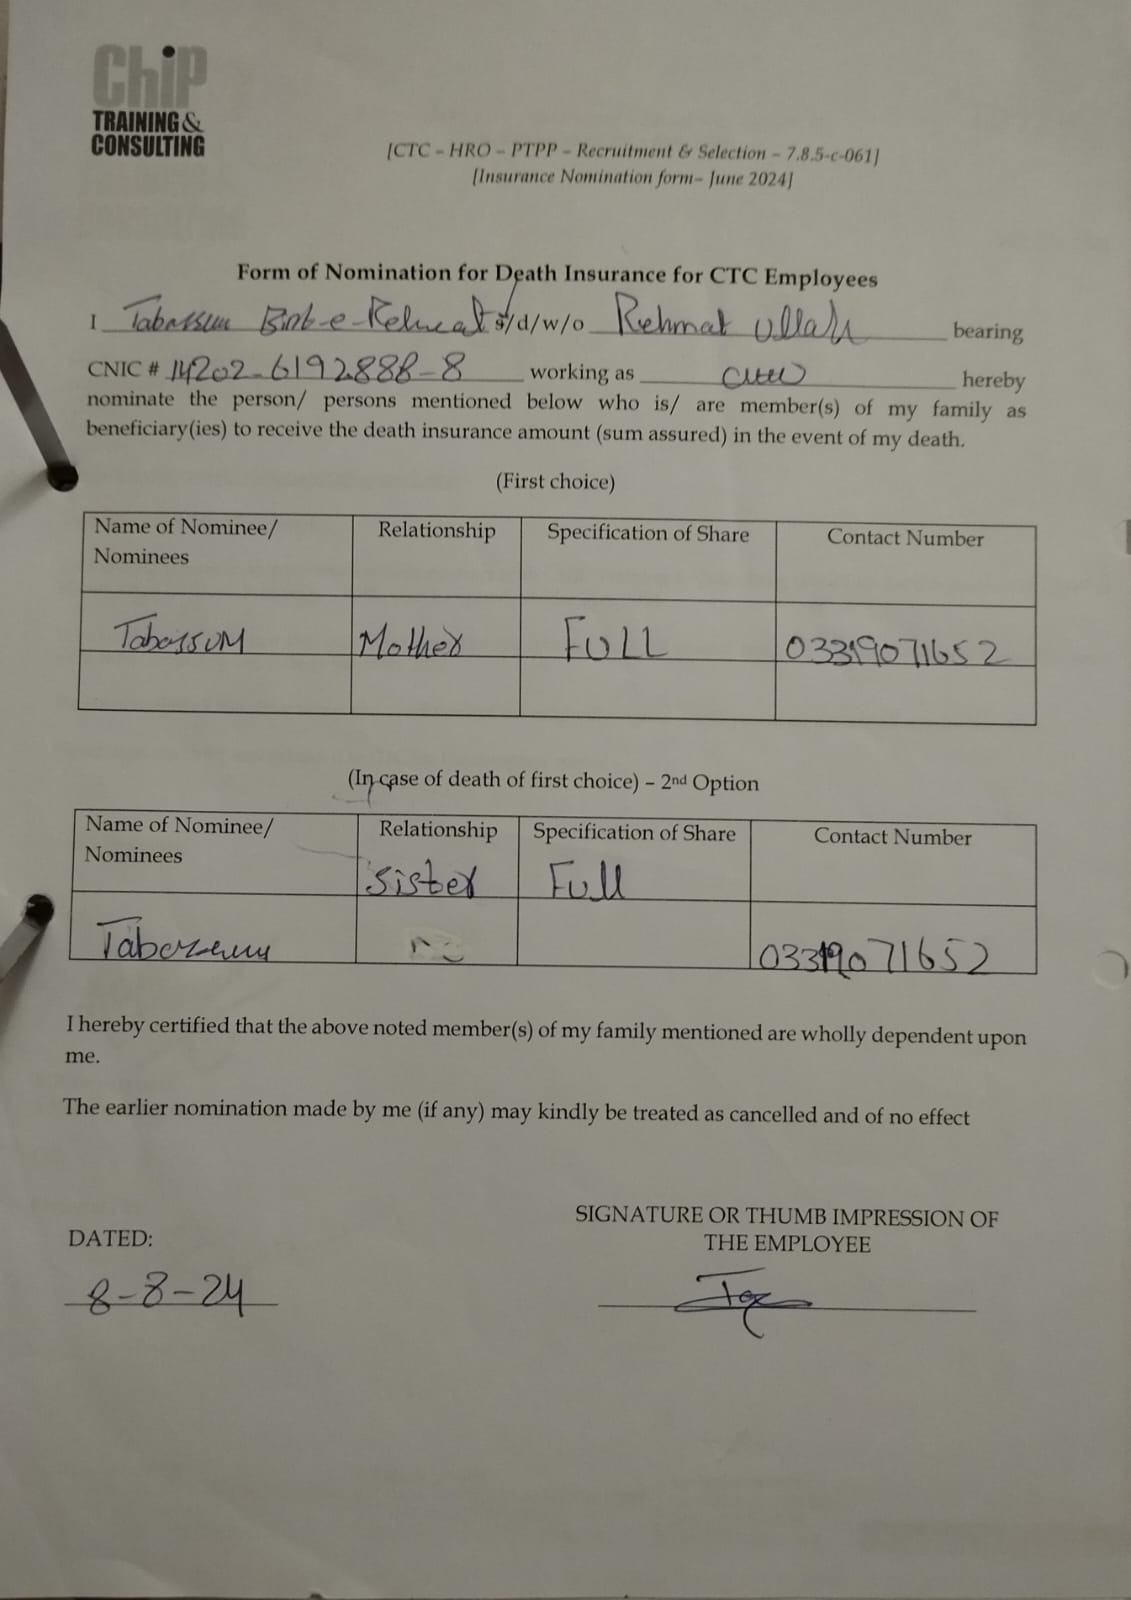 ChiP
TRAINING &
CONSULTING
[CTC – HRO – PTPP – Recruitment & Selection – 7.8.5-c-061]
[Insurance Nomination form– June 2024]
Form of Nomination for Death Insurance for CTC Employees
I Tabassum Bint-e-Rehmat s/d/w/o Rehmat Ullah bearing
CNIC # 14202-6192888-8 working as hereby
nominate the person/ persons mentioned below who is/ are member(s) of my family as
beneficiary(ies) to receive the death insurance amount (sum assured) in the event of my death.
(First choice)
Name of Nominee/ Relationship Specification of Share Contact Number
Nominees
Tabassum Mother FULL 03319071652
(In case of death of first choice) – 2nd Option
Name of Nominee/ Relationship Specification of Share Contact Number
Nominees
Sister Full
Tabassum 03319071652
I hereby certified that the above noted member(s) of my family mentioned are wholly dependent upon
me.
The earlier nomination made by me (if any) may kindly be treated as cancelled and of no effect
SIGNATURE OR THUMB IMPRESSION OF
DATED: THE EMPLOYEE
8-8-24